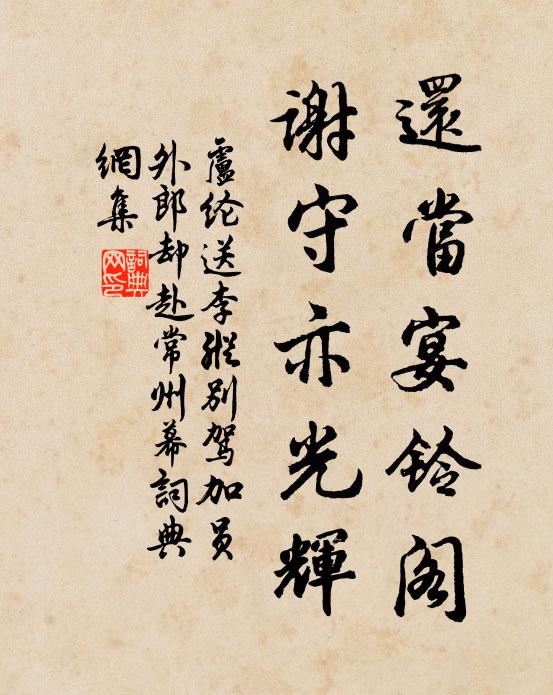 還當宴鈴閣
謝守亦光輝
盧纶送李縱別駕加员
外郎却赴常州幕詞典
網集
詞典
网印